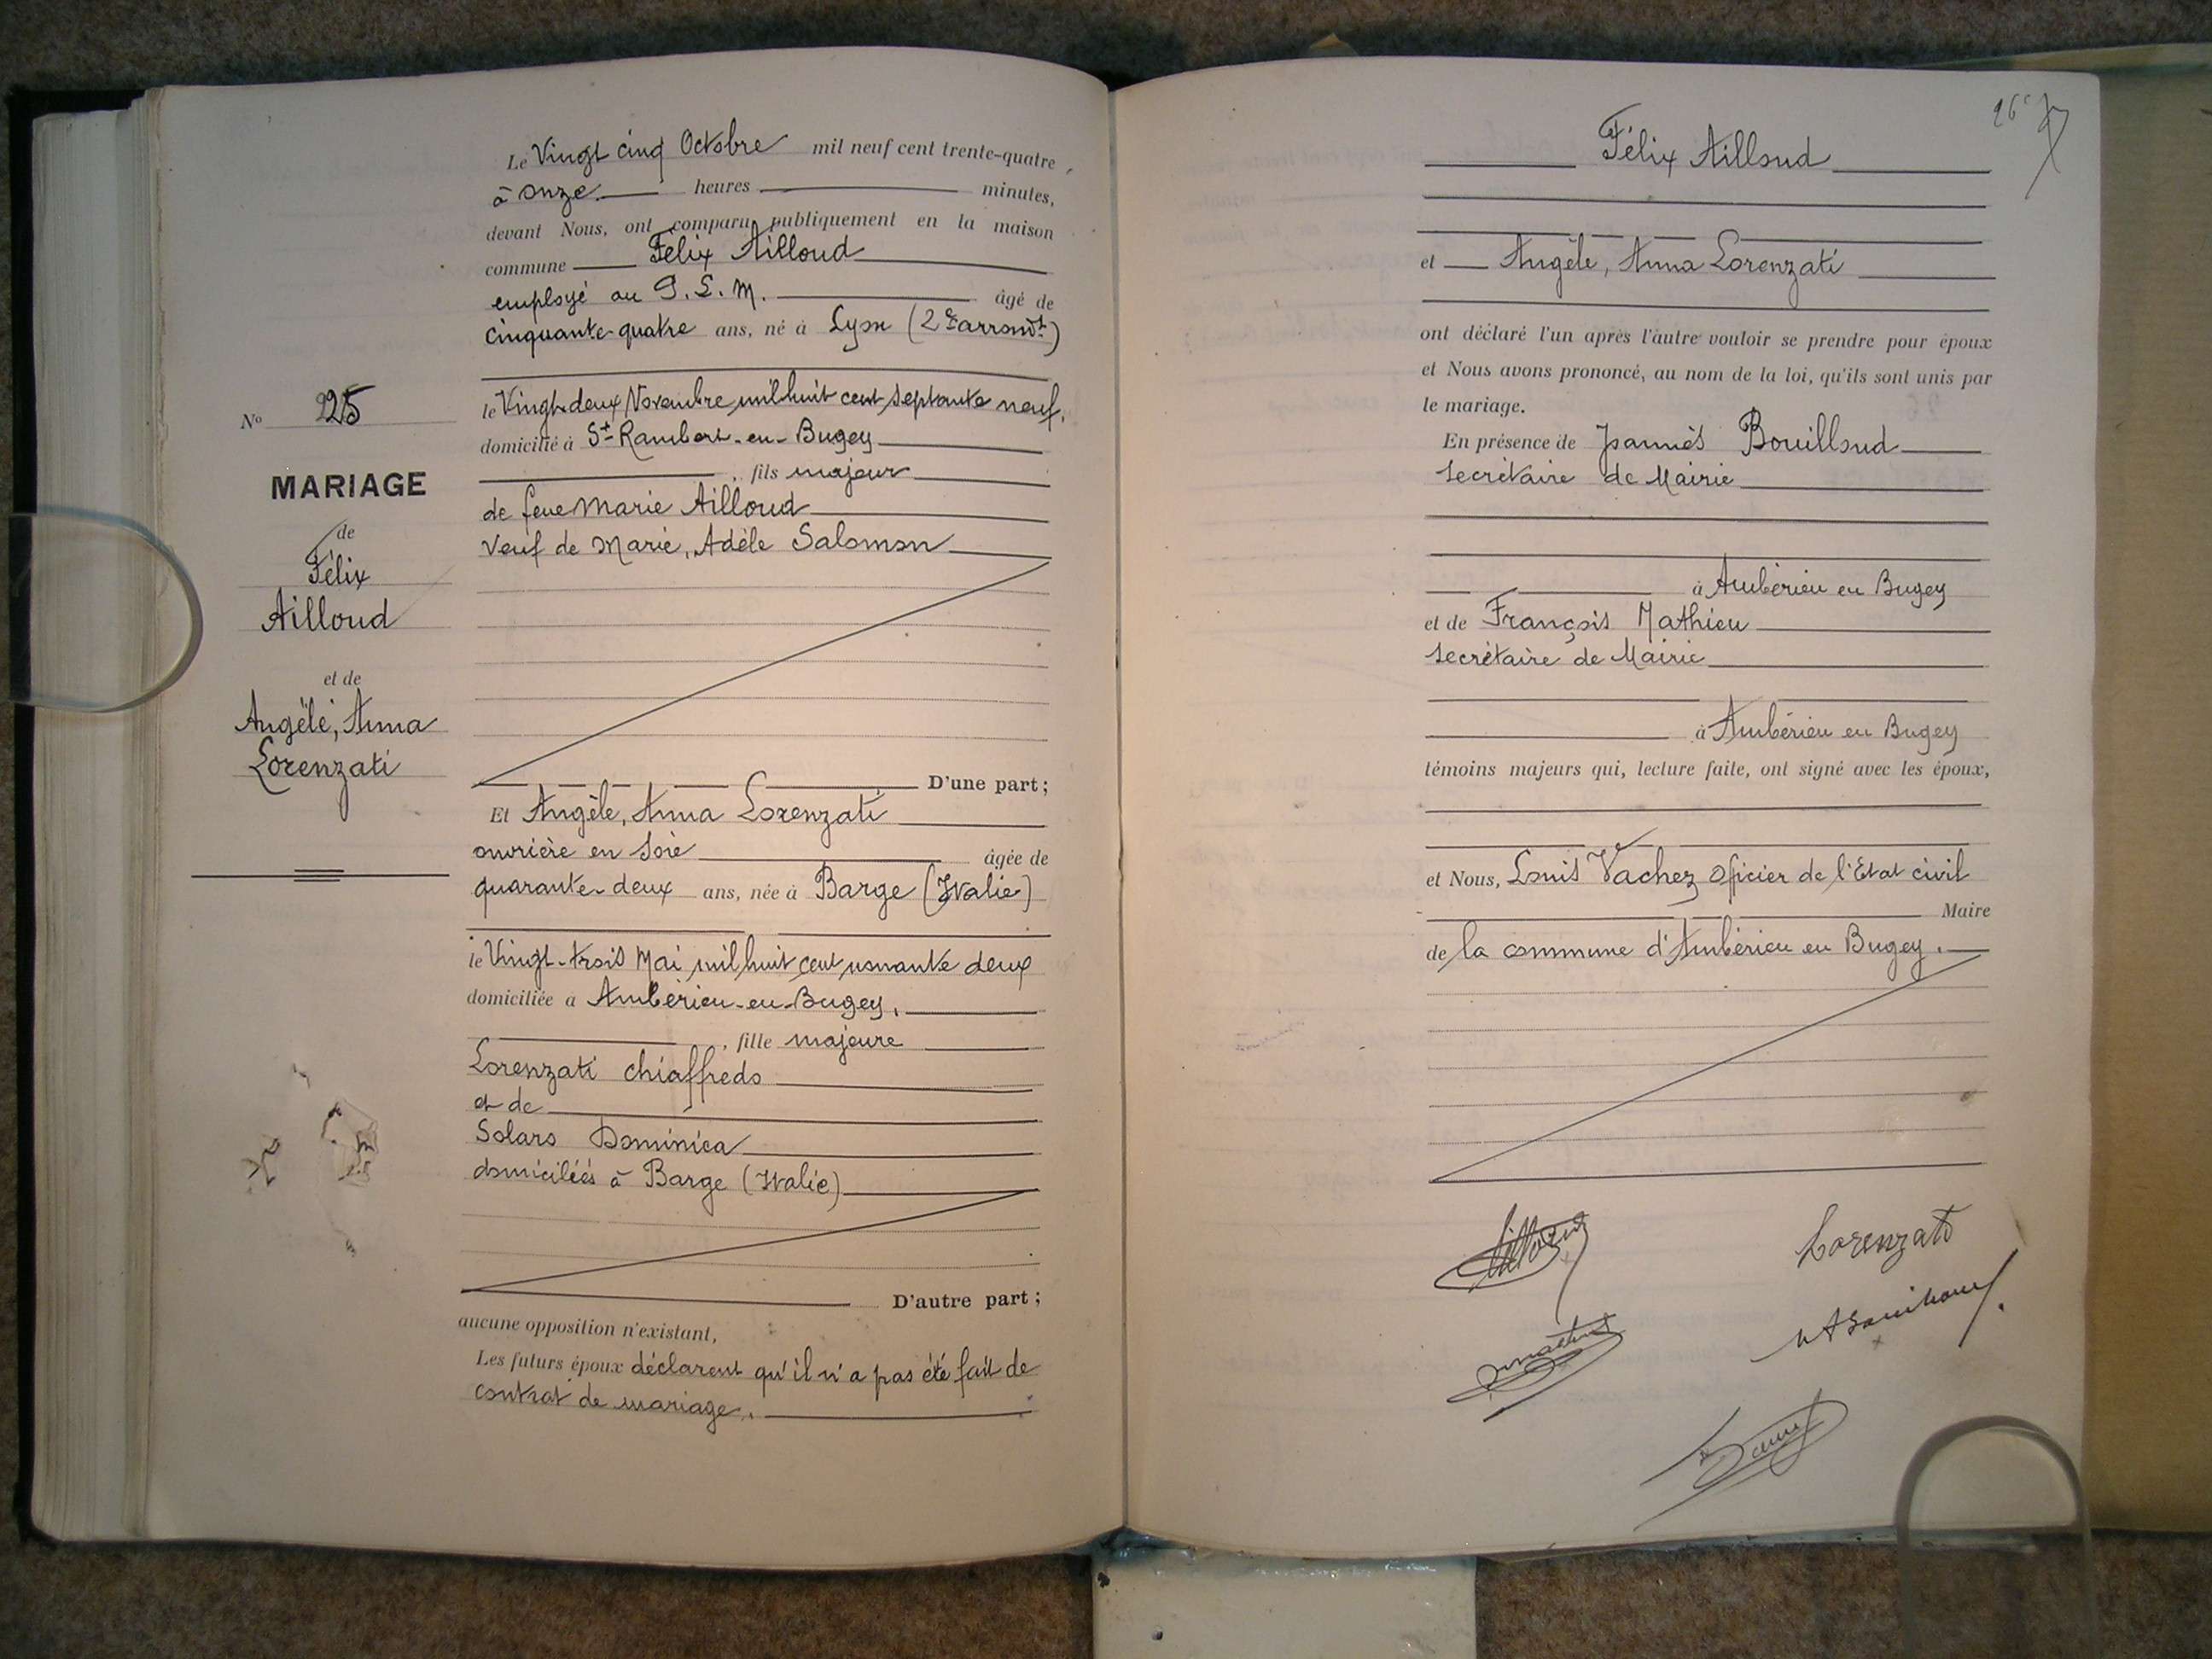 Le Vingt cinq Octobre mil neuf cent trente-quatre,
à onze heures minutes,
devant Nous, ont comparu publiquement en la maison
commune Félix Ailloud
employé au P. L. M. âgé de
cinquante-quatre ans, né à Lyon (2e arrondt)
le Vingt-deux Novembre mil huit cent septante neuf,
domicilié à St-Rambert-en-Bugey
, fils majeur
de feue Marie Ailloud
Veuf de Marie, Adèle Salomon
D'une part;
Et Angèle, Anna Lorenzati
ouvrière en soie âgée de
quarante-deux ans, née à Barge (Italie)
le Vingt-trois Mai mil huit cent nonante deux
domiciliée à Ambérieu-en-Bugey,
, fille majeure
Lorenzati chiaffredo
et de
Solaro Dominica
domiciliés à Barge (Italie)
D'autre part;
aucune opposition n'existant,
Les futurs époux déclarent qu'il n'a pas été fait de
contrat de mariage.
No 25
MARIAGE
de
Félix
Ailloud
et de
Angèle, Anna
Lorenzati
26
Félix Ailloud
et Angèle, Anna Lorenzati
ont déclaré l'un après l'autre vouloir se prendre pour époux
et Nous avons prononcé, au nom de la loi, qu'ils sont unis par
le mariage.
En présence de Joannès Bouilloud
secrétaire de Mairie
à Ambérieu en Bugey
et de François Mathieu
secrétaire de Mairie
à Ambérieu en Bugey
témoins majeurs qui, lecture faite, ont signé avec les époux,
et Nous, Louis Vachez Oficier de l'Etat civil
Maire
de la commune d'Ambérieu en Bugey.
Lorenzati